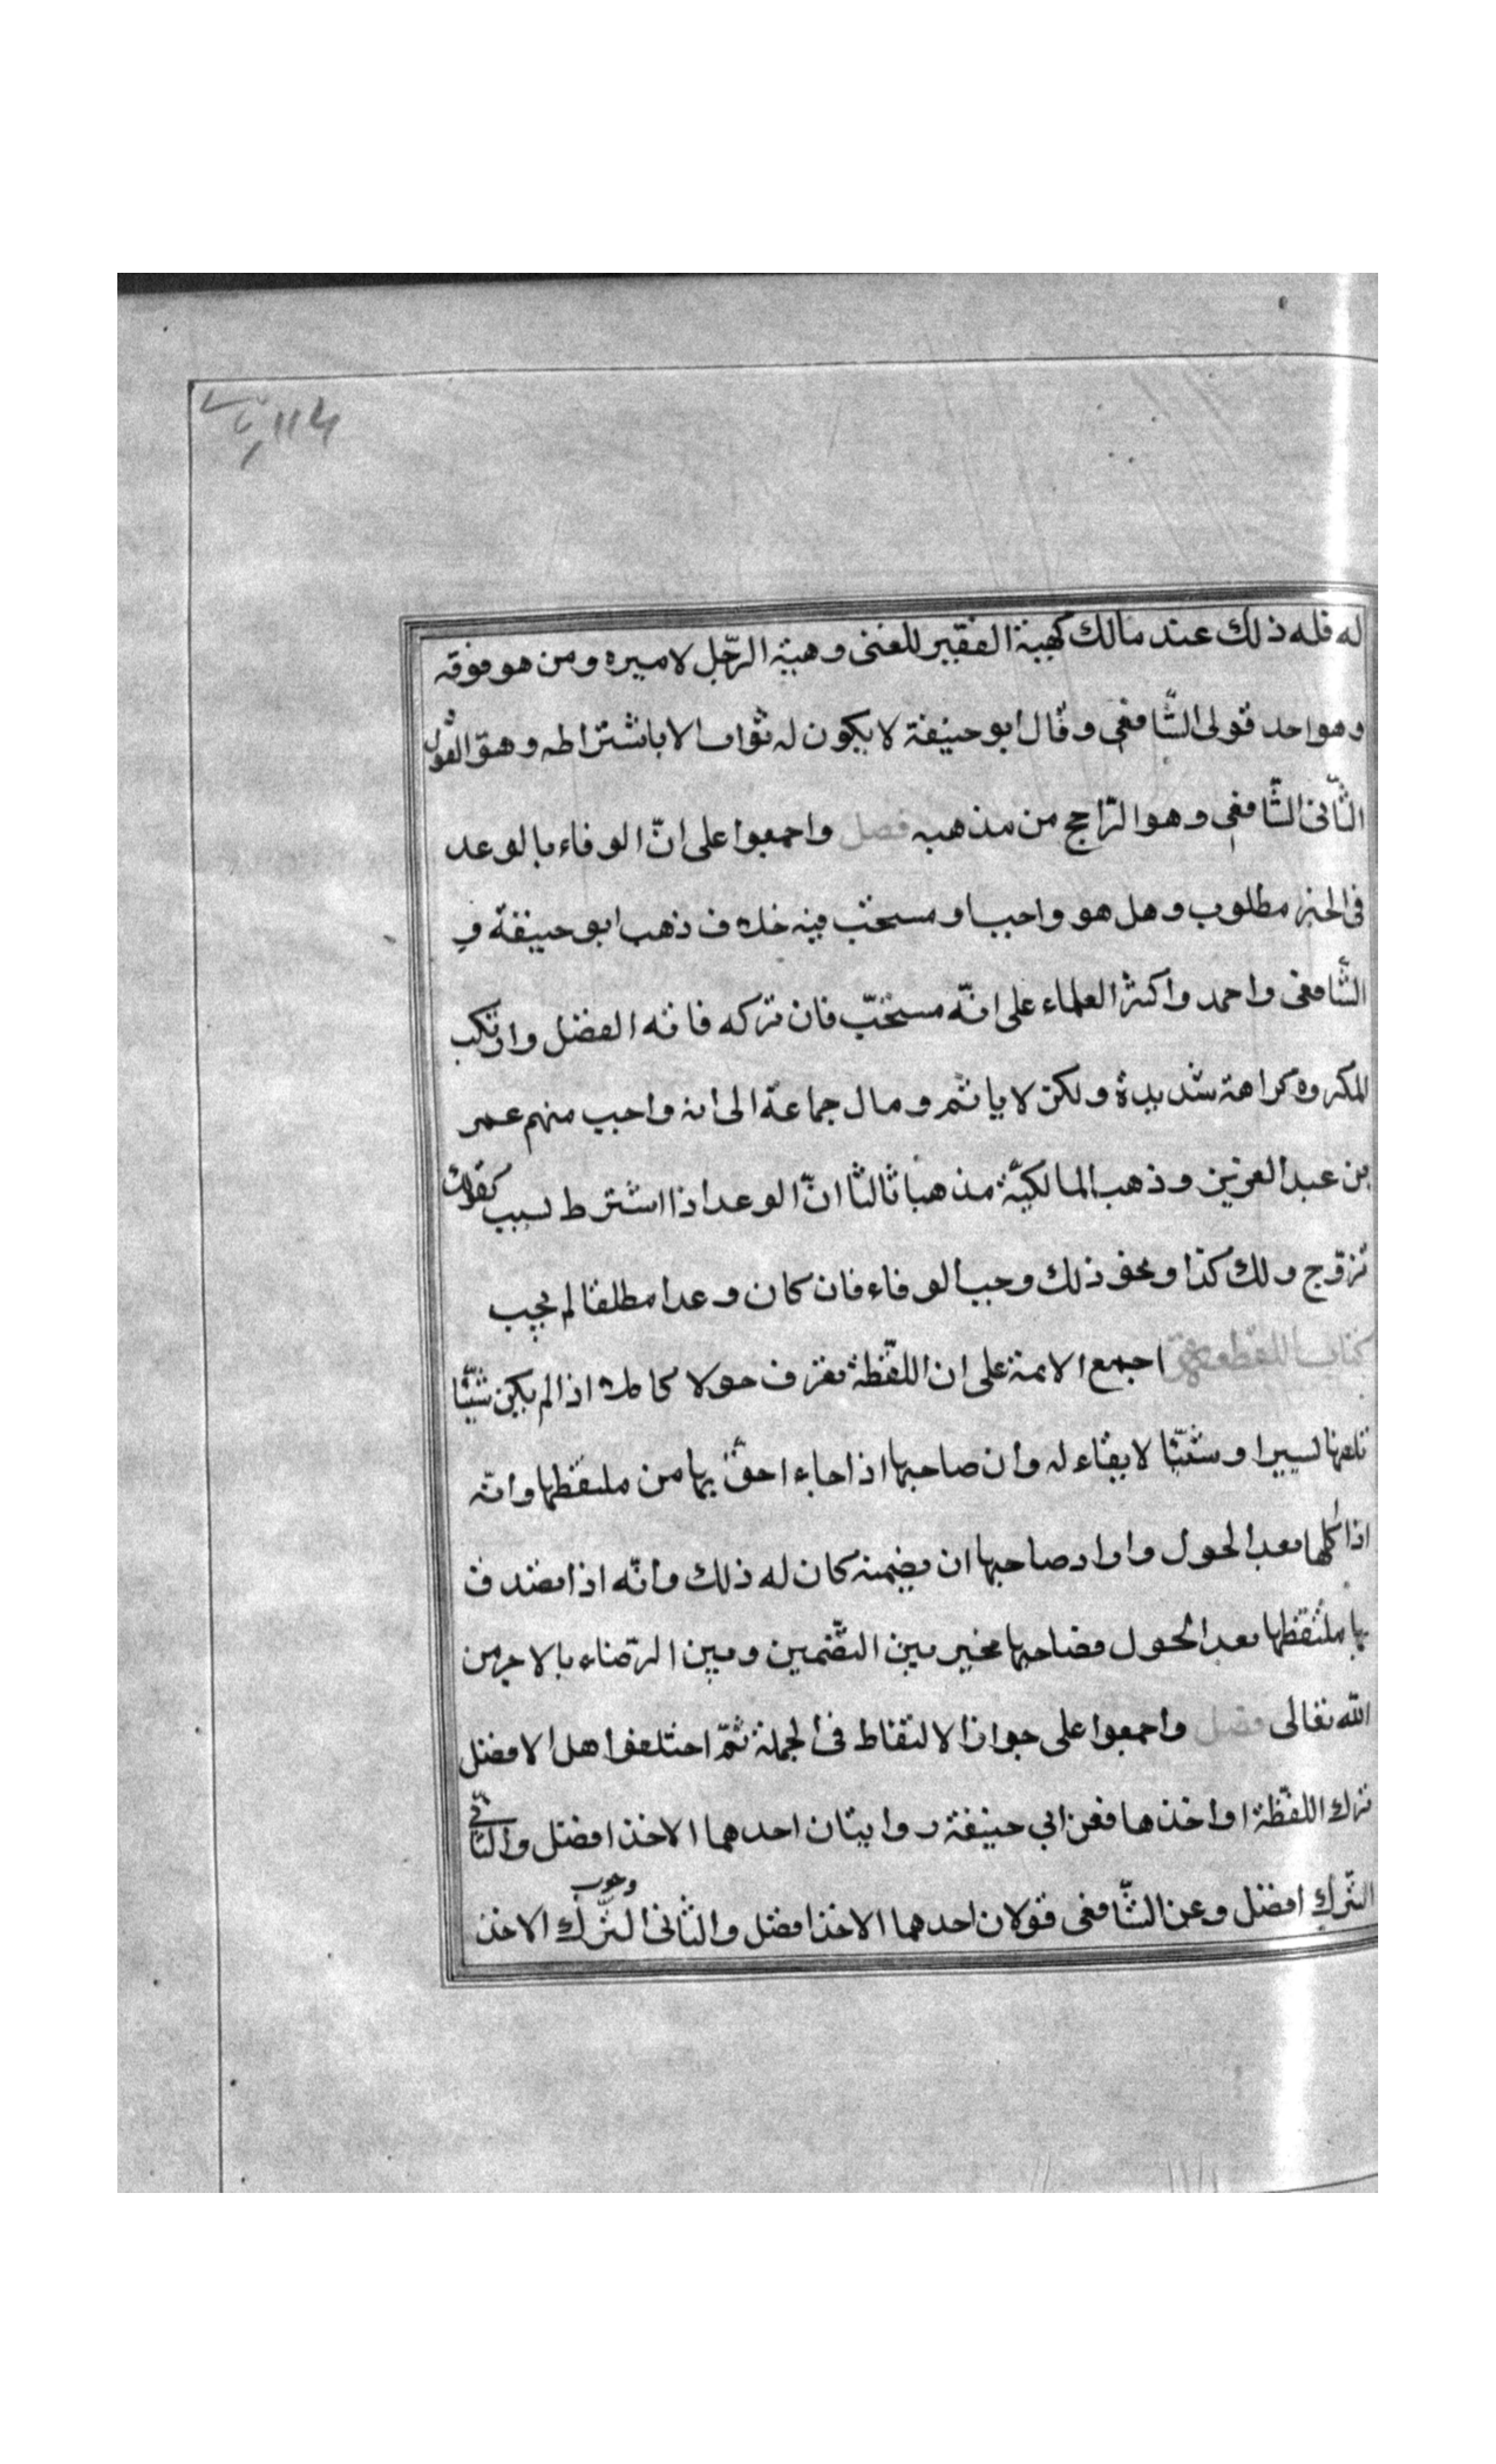 له فله ذلك عند مالك كهبة الفقير للغنى وهبة الرّجل لاميره ومن هو فوقه
وهو احد قولى الشّافعى وقال ابو حنيفة لا يكون له ثواب الا باشتراطه وهو القول
الثّانى الشّافعى وهو الرّاجح من مذهبه فصل واجمعوا على انّ الوفاء بالوعد
فى الخير مطلوب وهل هو واجب او مستحبّ فيه خلاف ذهب ابو حنيفة و
الشّافعى واحمد واكثر العلماء على انّه مستحبّ فان تركه فاته الفضل وارتكب
المكروه كراهة شديدة ولكن لا ياثم ومال جماعة الى انه واجب منهم عمر
بن عبد العزيز وذهب المالكيّة مذهبا ثالثا انّ الوعد اذا اشترط بسبب كقولك
تزوّج ولك كذا ونحو ذلك وجب الوفاء فان كان وعدا مطلقا لم يجب
كتاب اللقطة اجمع الائمة على ان اللقطة تعرف حولا كاملا اذا لم يكن شيئا
تافها يسيرا او شيئا لا بقاء له وان صاحبها اذا جاء احقّ بها من ملتقطها وانّه
اذا اكلها بعد الحول واراد صاحبها ان يضمنه كان له ذلك وانّه اذا تصدف
بها ملتقطها بعد الحول فصاحبها مخير بين التّضمين وبين الرّضاء بالاجر من
الله تعالى فصل واجمعوا على جواز الالتقاط فى الجملة ثمّ اختلفوا هل الافضل
ترك اللقطة او اخذها فعن ابي حنيفة روايتان احدهما الاخذ افضل والثّانى
التّرك افضل وعن الشّافعى قولان احدهما الاخذ افضل والثانى التّرك وجوب الاخذ